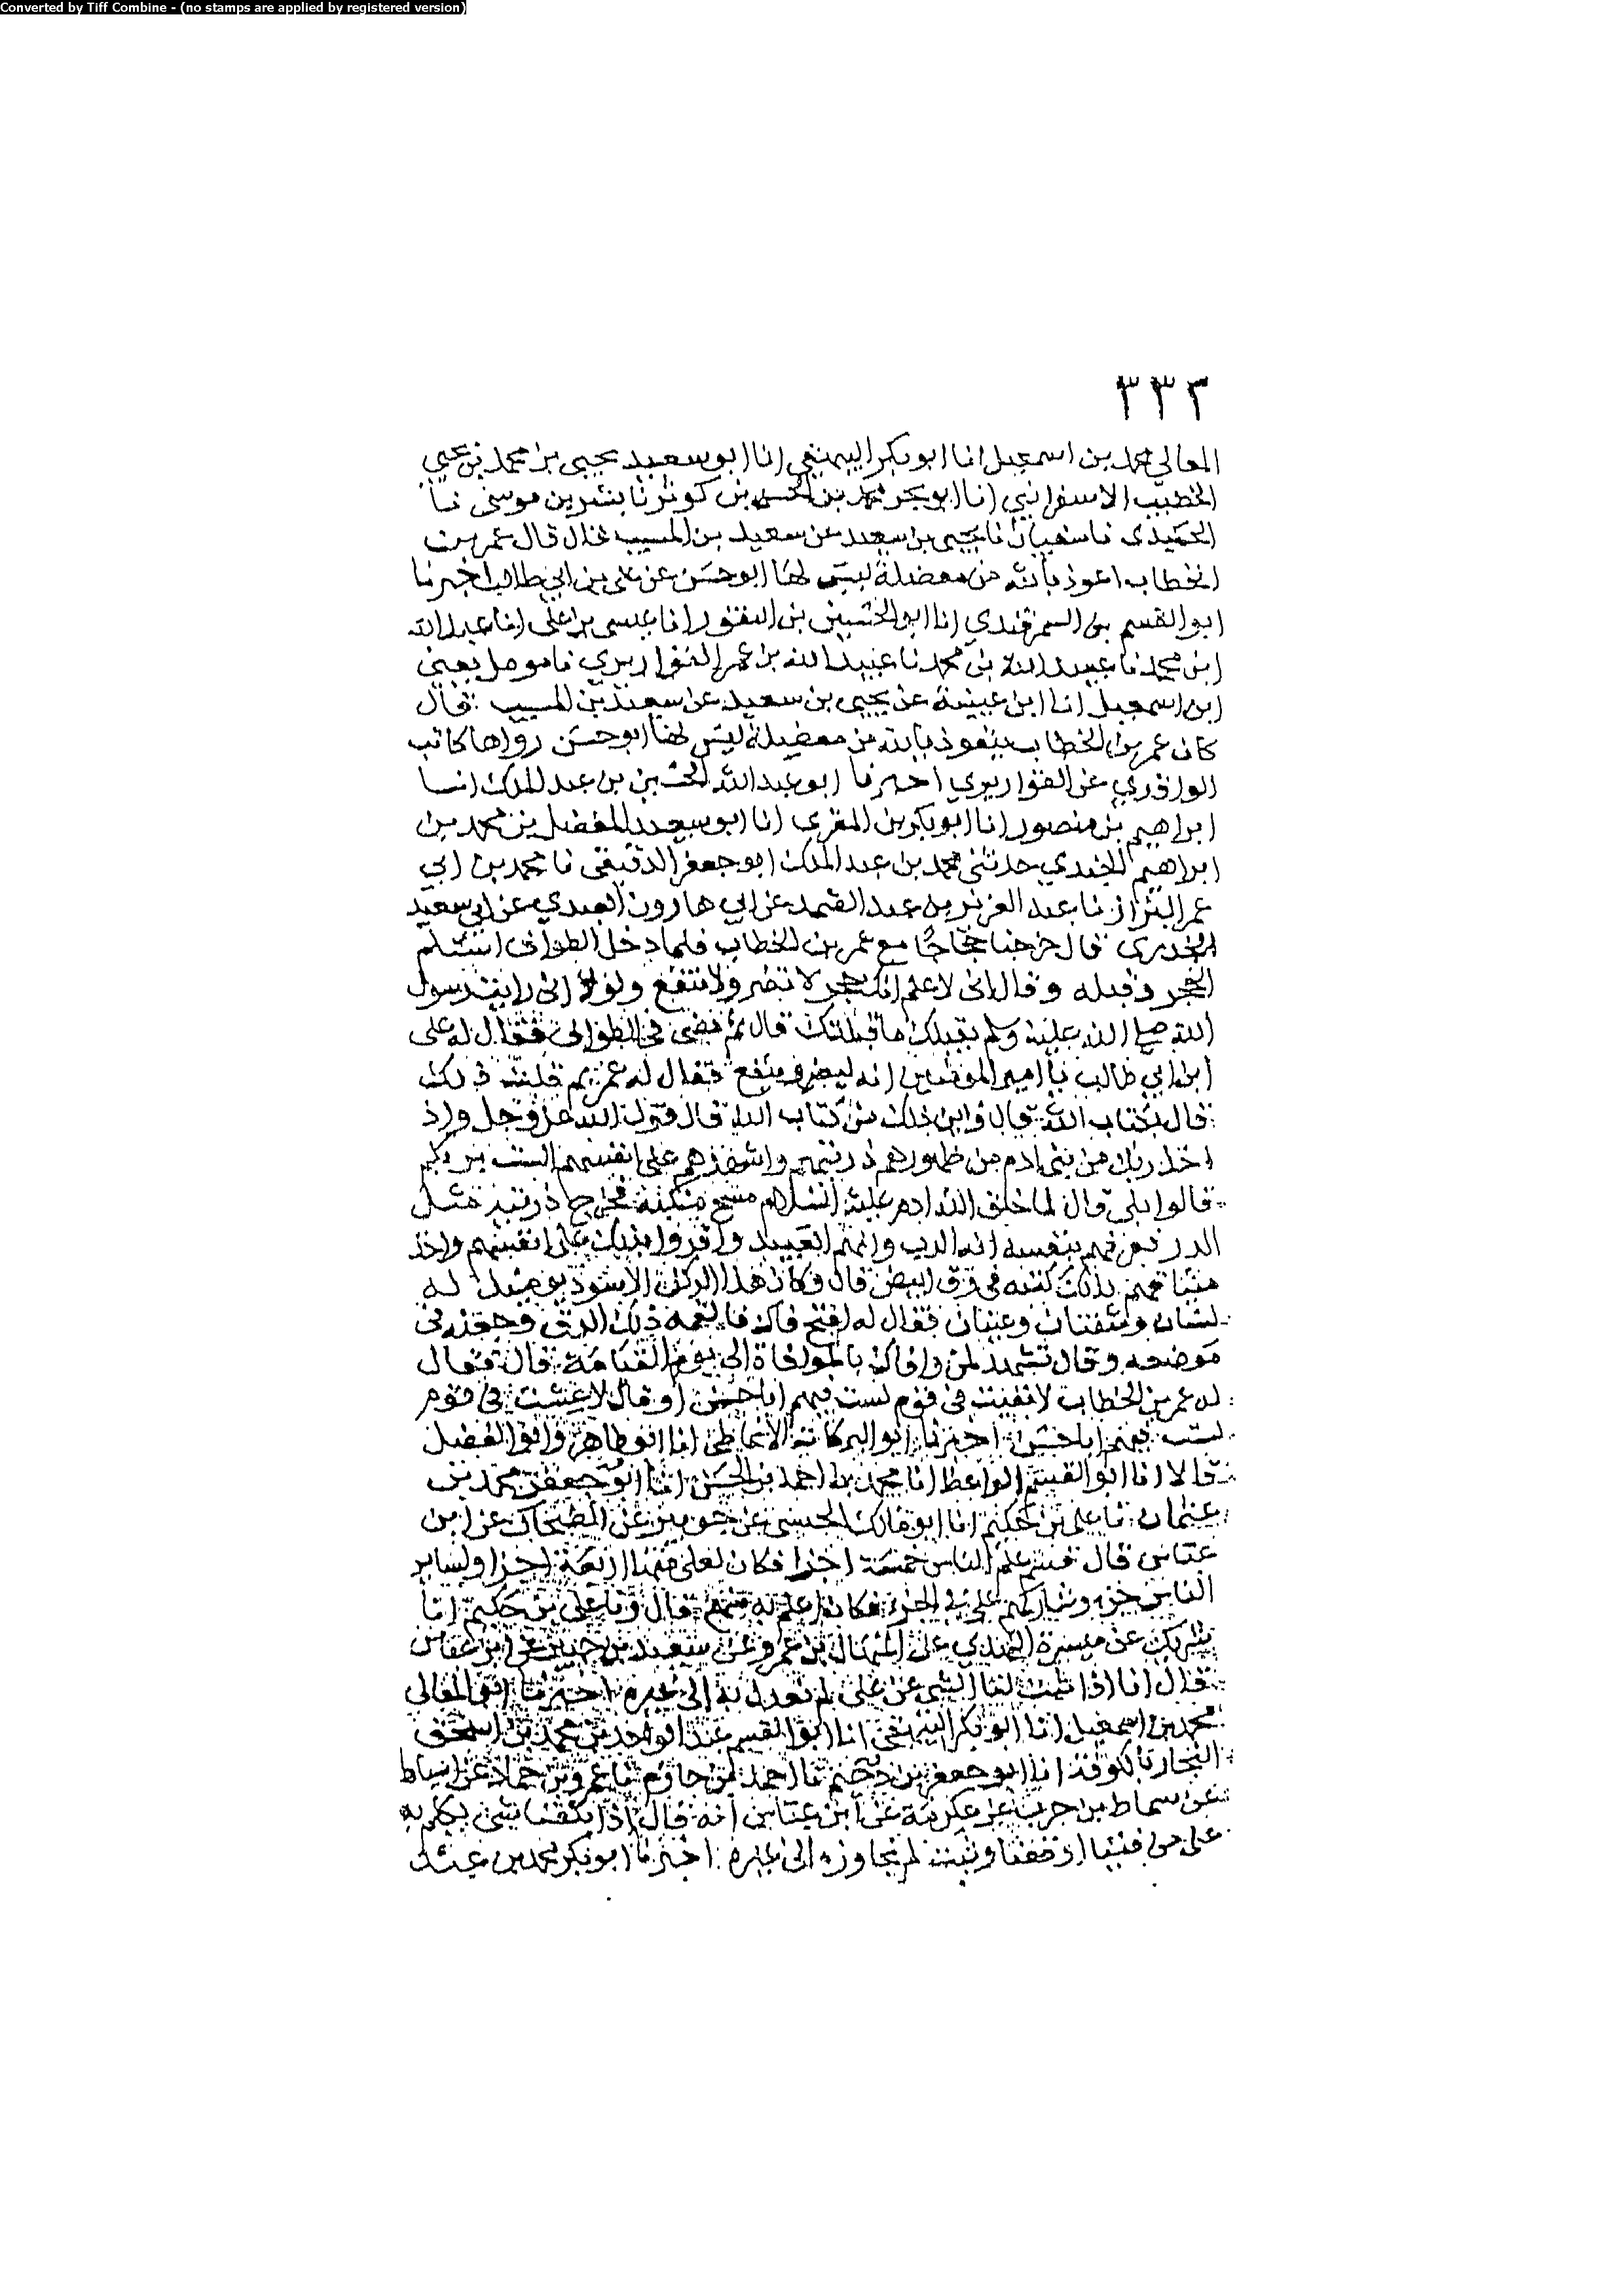 Converted by Tiff Combine - (no stamps are applied by registered version)
٣٣٣
المعالي محمد بن اسمعيل انا ابو بكر البيهقي انا ابو سعيد يحيى بن محمد بن يحيى
الخطيب الاسفرائني انا ابو بحر محمد بن الحسن بن كوثر نا بشر بن موسى نا
الحميدى نا سفيان نا يحيى بن سعيد عن سعيد بن المسيب قال قال عمر بن
الخطاب اعوذ بالله من معضلة ليس لها ابو حسن عن علي بن ابي طالب اخبرنا
ابو القسم بن السمرقندي انا ابو الحسين بن النقور انا عيسى بن علي انا عبد الله
ابن محمد نا عبيد الله بن محمد نا عبيد الله بن عمر القواريري نا مومل يعني
ابن اسمعيل انا ابن عيينة عن يحيى بن سعيد عن سعيد بن المسيب قال
كان عمر بن الخطاب يتعوذ بالله من معضلة ليس لها ابو حسن رواها كاتب
الواقدي عن القواريري اخبرنا ابو عبد الله الحسين بن عبد الملك انا
ابراهيم بن منصور انا ابو بكر بن المقري انا ابو سعيد المفضل بن محمد بن
ابراهيم الجندي حدثني محمد بن عبد الملك ابو جعفر الدقيقي نا محمد بن ابي
عمر البزاز نا عبد العزيز بن عبد الصمد عن ابي هارون العبدي عن ابي سعيد
الخدري قال خرجنا حجاجًا مع عمر بن الخطاب فلما دخل الطواف استلم
الحجر وقبله وقال اني لاعلم انك حجر لا تضر ولا تنفع ولولا اني رايت رسول
الله صلى الله عليه وسلم يقبلك ما قبلتك قال ثم مضى في الطواف فقال له علي
ابن ابي طالب يا امير المومنين انه ليضر وينفع فقال له عمر بم قلت ذلك
قال بكتاب الله قال واين ذلك من كتاب الله قال قول الله عز وجل واذ
اخذ ربك من بني ادم من ظهورهم ذريتهم واشهدهم على انفسهم الست بربكم
قالوا بلى قال لما خلق الله ادم عليه السلام مسح منكبه فخرج ذريته مثل
الذر فعرفهم بنفسه انه الرب وانهم العبيد واقروا بذلك على انفسهم واخذ
ميثاقهم بذلك كتبه في رق ابيض قال وكان هذا الركن الاسود يومئذ له
لسان وشفتان وعينان فقال له افتح فاك فالقمه ذلك الرق وجعله في
موضعه وقال تشهد لمن وافاك بالموافاة الى يوم القيامة قال فقال
له عمر بن الخطاب لا بقيت في قوم لست فيهم ابا حسن او قال لا عشت في قوم
لست فيهم ابا حسن اخبرنا ابو البركات الانماطي انا ابو طاهر وابو الفضل
قالا انا ابو القسم الواعظ انا محمد بن احمد بن الحسن انا ابو جعفر محمد بن
عثمان نا علي بن حكيم انا ابو مالك الجنبي عن جويبر عن الضحاك عن ابن
عباس قال قسم علم الناس خمسة اجزا فكان لعلي منها اربعة اجزا ولساير
الناس جزء وشاركهم علي في الجزء فكان اعلم به منهم قال ونا علي بن حكيم انا
شريك عن ميسرة النهدي عن المنهال بن عمرو عن سعيد بن جبير عن ابن عباس
قال انا اذا ثبت لنا الشي عن علي لم نعدل به الى غيره اخبرنا ابو المعالي
محمد بن اسمعيل انا ابو بكر البيهقي انا ابو القسم عبد الواحد بن محمد بن اسحق
النجار بالكوفة انا ابو جعفر بن دحيم نا احمد بن حازم نا عمرو بن حماد عن اسباط
عن سماط بن حرب عن عكرمة عن ابن عباس انه قال اذا بلغنا شي تكلم به
علي من فتيا او قضا وثبت لم نجاوزه الى غيره اخبرنا ابو بكر محمد بن عبد